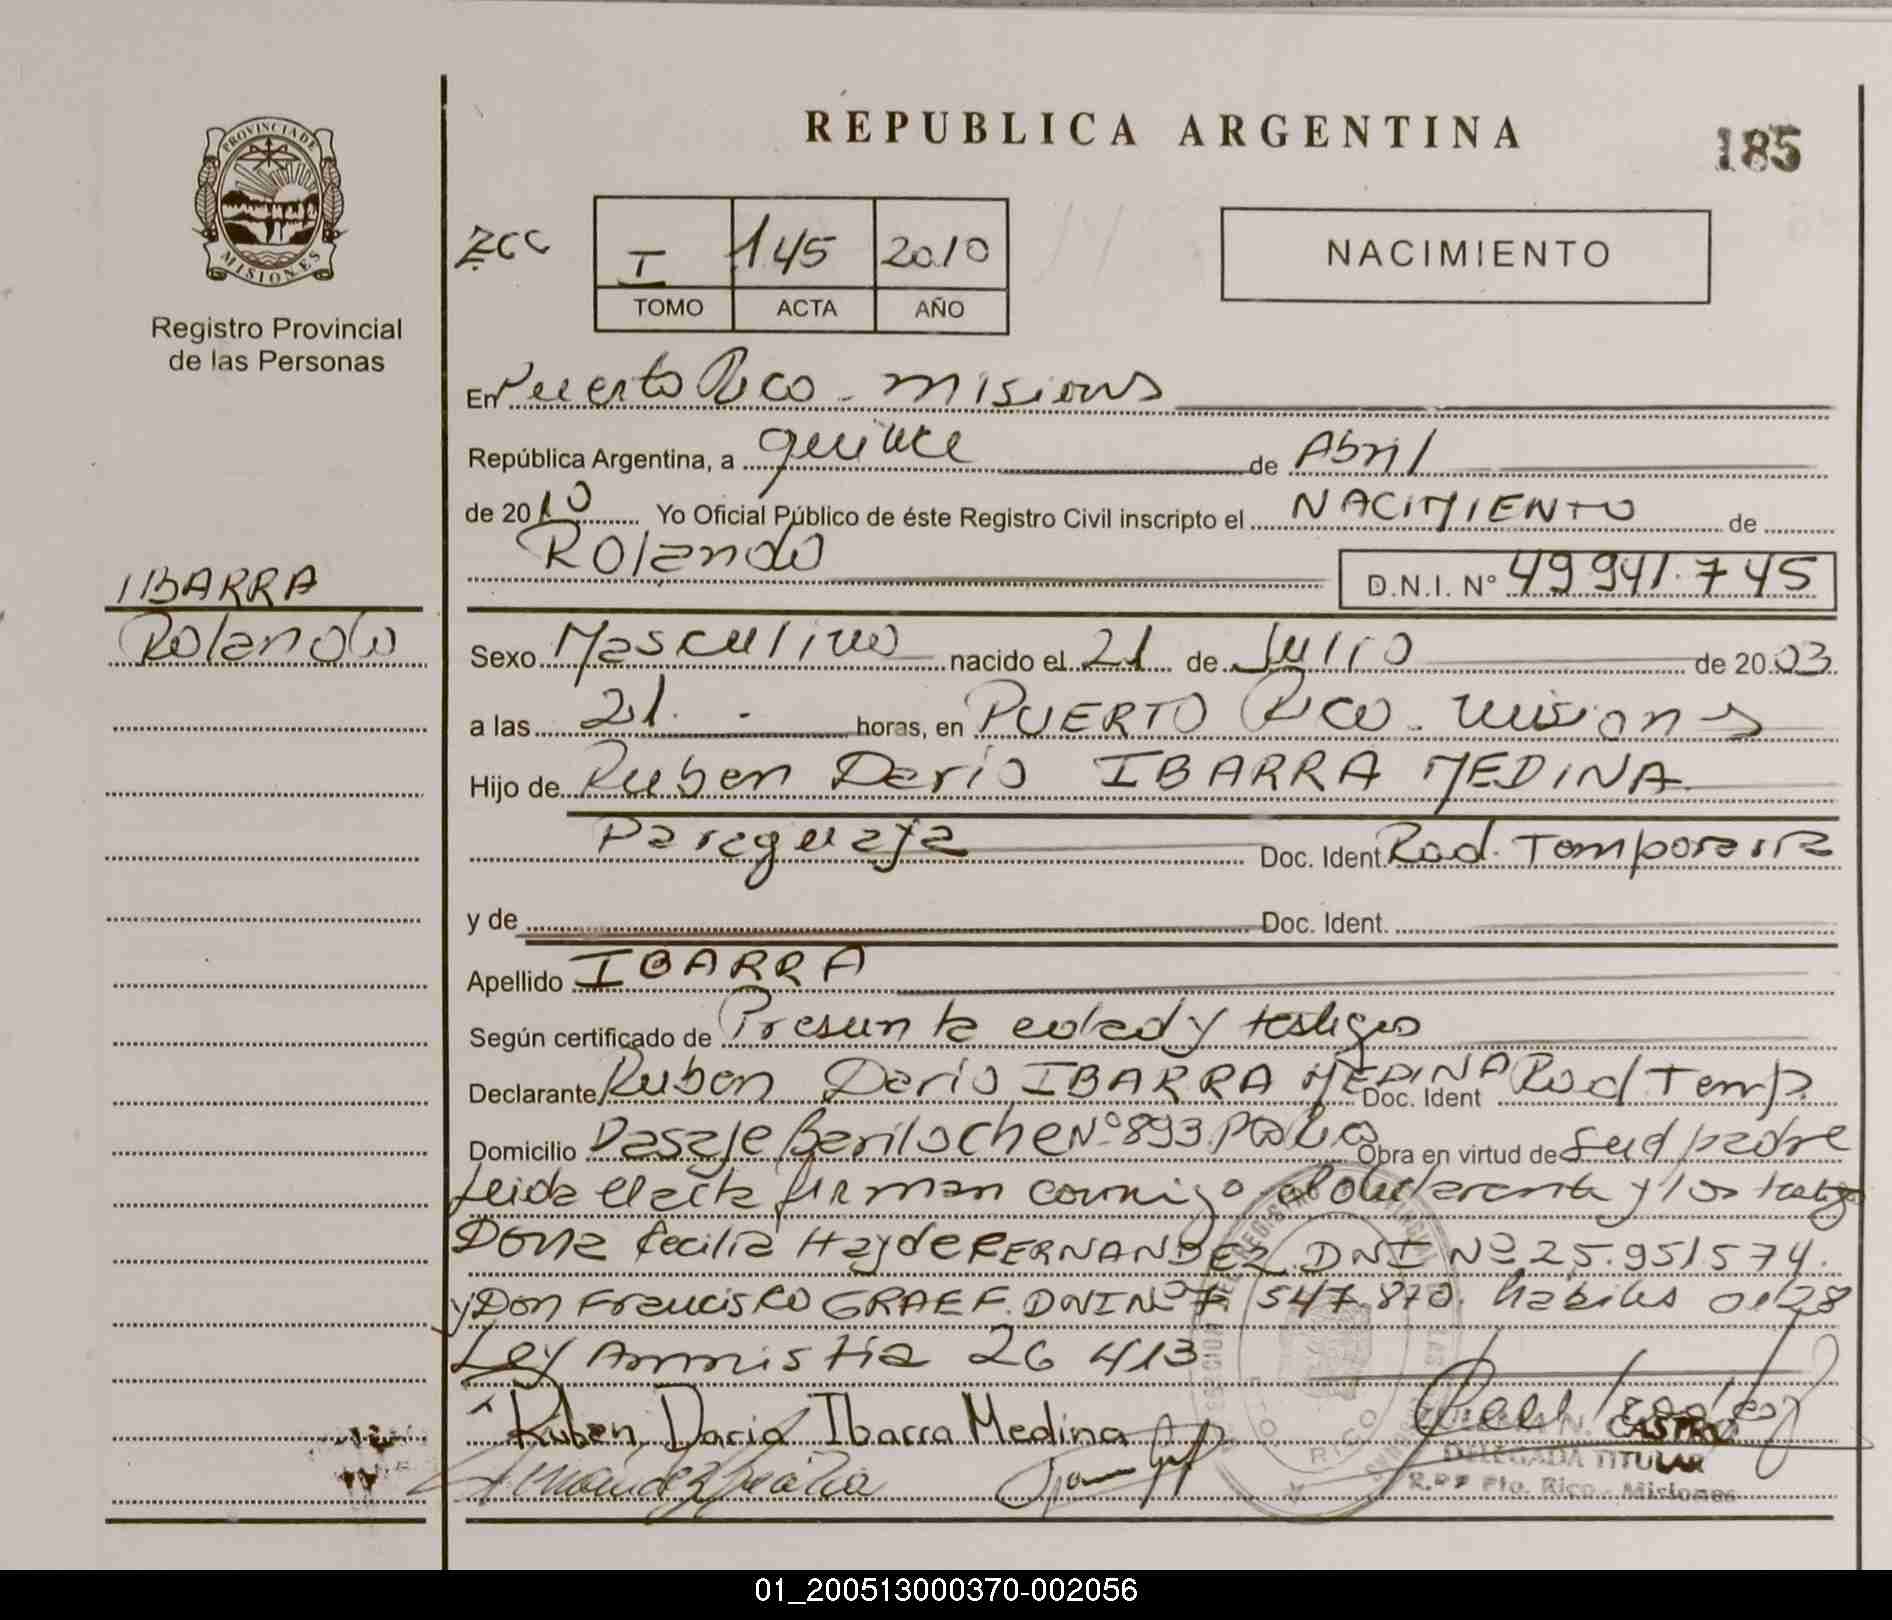 REPUBLICA ARGENTINA
185
PROVINCIA DE
MISIONES
Registro Provincial
de las Personas
ZCC
I 145 2010
TOMO ACTA AÑO
NACIMIENTO
En Puerto Rico - Misiones
República Argentina, a quince de Abril
de 2010 Yo Oficial Público de éste Registro Civil inscripto el NACIMIENTO de
Rolando
D.N.I. N° 49 941.745
IBARRA
Rolando
Sexo Masculino nacido el 21 de Julio de 2003
a las 21. - horas, en PUERTO Rico - Misiones
Hijo de Ruben Dario IBARRA MEDINA
Paraguaya Doc. Ident. Rad. Temporaria
y de Doc. Ident.
Apellido IBARRA
Según certificado de Presunta edad y testigos
Declarante Ruben Dario IBARRA MEDINA Doc. Ident Rad Temp.
Domicilio Pasaje Bariloche N° 893 Obra en virtud de padre
Leida el acta firman conmigo el declarante y los testigos
Doña Cecilia Hayde FERNANDEZ DNI Nº 25.951.574.
y Don Francisco GRAEF. DNI Nº 7.547.870. habiles
Ley Amnistia 26 413
Ruben Dario Ibarra Medina
CASTRO
DELEGADA TITULAR
R.P.P Pto. Rico - Misiones
RICO
01_200513000370-002056